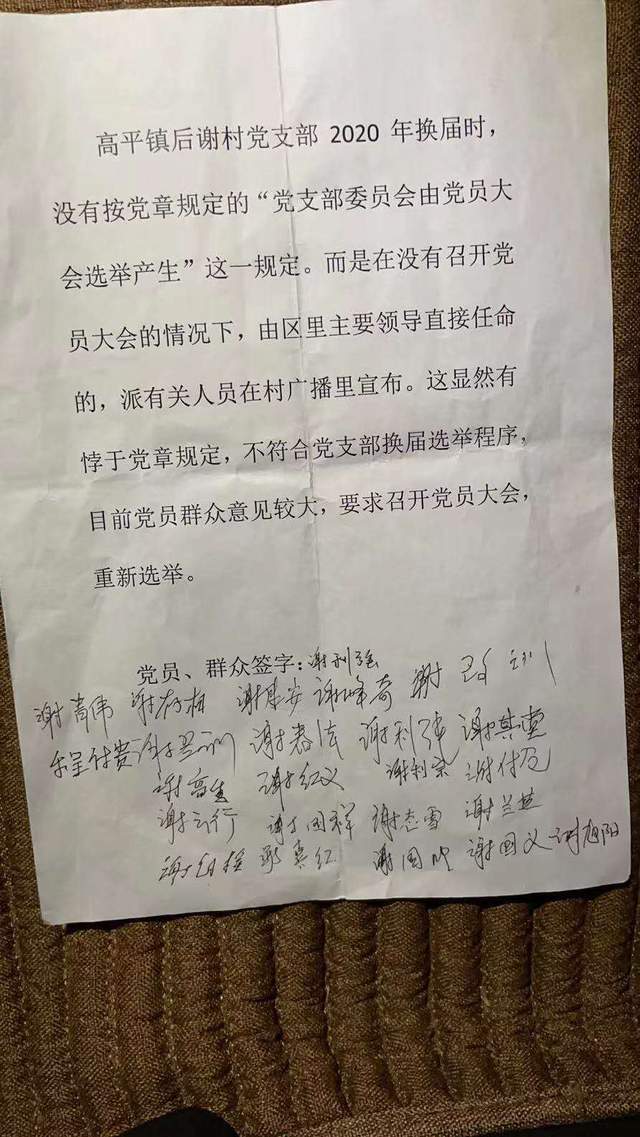 高平镇后谢村党支部 2020 年换届时，
没有按党章规定的“党支部委员会由党员大
会选举产生”这一规定。而是在没有召开党
员大会的情况下，由区里主要领导直接任命
的，派有关人员在村广播里宣布。这显然有
悖于党章规定，不符合党支部换届选举程序，
目前党员群众意见较大，要求召开党员大会，
重新选举。
党员、群众签字：谢利强
谢高伟 谢 谢 安 谢峰奇 谢 训
谢 训 谢春法 谢利 谢其
谢高 谢红义 谢利宗 谢付
谢云行 谢国祥 谢杰雪 谢兰英
谢 真红 谢国 谢国义 谢旭阳